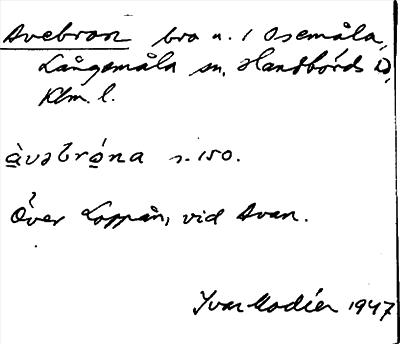 Avebron bro n. i Osemåla,
Långemåla sn, Handbörds hd,
Klm. l.
àvabróna s. 150.
Över Loppån, vid Avan.
Yvar Modéer 1947